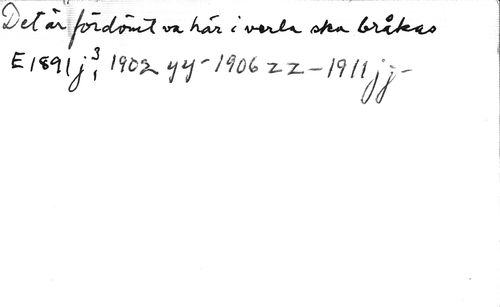 Det är fördömt va här i verla ska bråkas
E1891j 3/1 1902 yy - 1906 zz - 1911 jj -